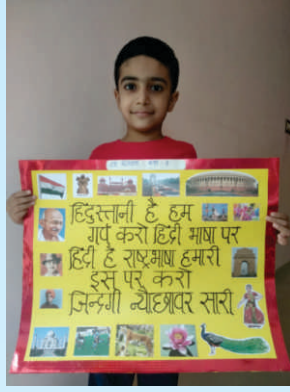 हिंदुस्तानी हैं हम
गर्व करो हिंदी भाषा पर
हिंदी है राष्ट्रभाषा हमारी
इस पर करो
जिन्दगी न्यौछावर सारी